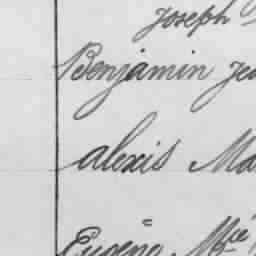 Joseph
Benjamin Je
alexis Ma
Eugène Mcié